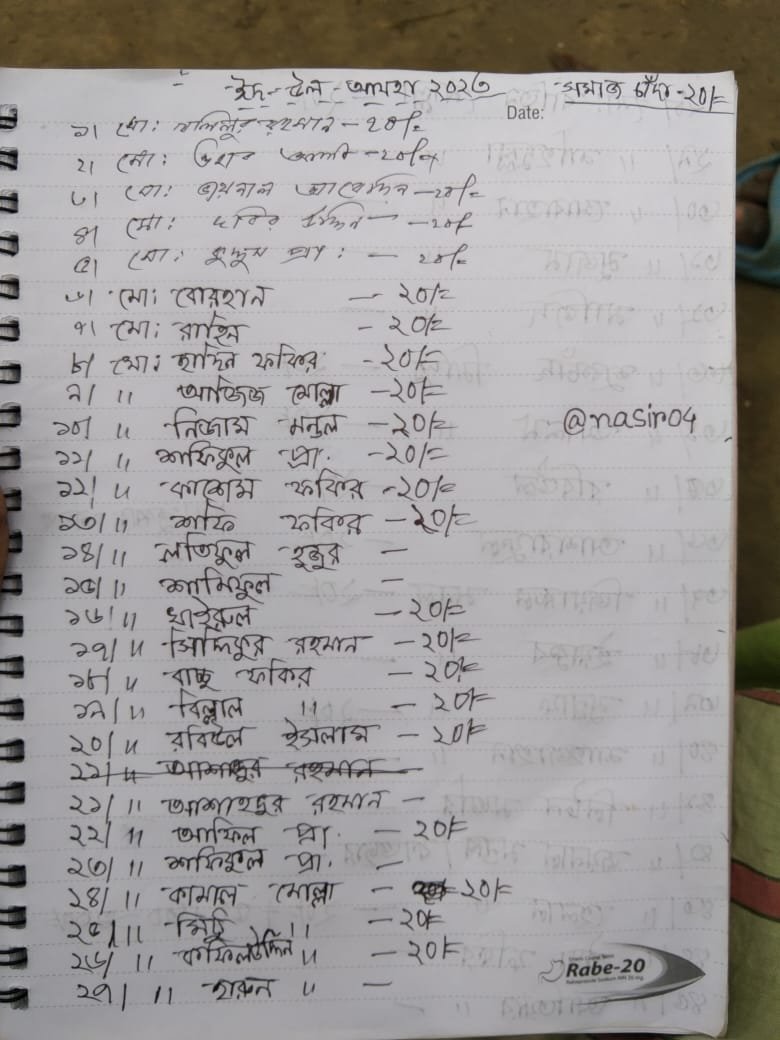 ঈদ-উল-আযহা ২০২৩ সমাজ চাঁদা-২০/=
Date:
১। মো: খলিলুর রহমান - ২০/=
২। মো: আলী - ২০/=
৩। মো: জয়নাল আবেদিন - ২০/=
৪। মো: দবির উদ্দিন - - ২০/=
৫। মো: কুদ্দুস প্রা: - ২০/=
৬। মো: বোরহান - ২০/=
৭। মো: রাহিম - ২০/=
৮। মো: হাদিন ফকির - ২০/=
৯। " আজিজ মোল্লা - ২০/=
১০। " নিজাম মন্ডল - ২০/=
@nasir04
১১। " শফিকুল প্রা. - ২০/=
১২। " কাশেম ফকির - ২০/=
১৩। " শফি ফকির - ২০/=
১৪। " লতিফুল হুজুর -
১৫। " শামিফুল -
১৬। " খাইরুল - ২০/=
১৭। " সিদ্দিকুর রহমান - ২০/=
১৮। " বাচ্চু ফকির - ২০/=
১৯। " বিল্লাল " - ২০/=
২০। " রবিউল ইসলাম - ২০/=
২১। " আশাদুর রহমান -
২১। " আশাহদুর রহমান -
২২। " আফিল প্রা. - ২০/=
২৩। " শফিকুল প্রা. -
২৪। " কামাল মোল্লা - ২০/=
২৫। " মিঠু " - ২০/=
২৬। " কফিলউদ্দিন " - ২০/=
২৭। " হারুন " -
Rabe-20